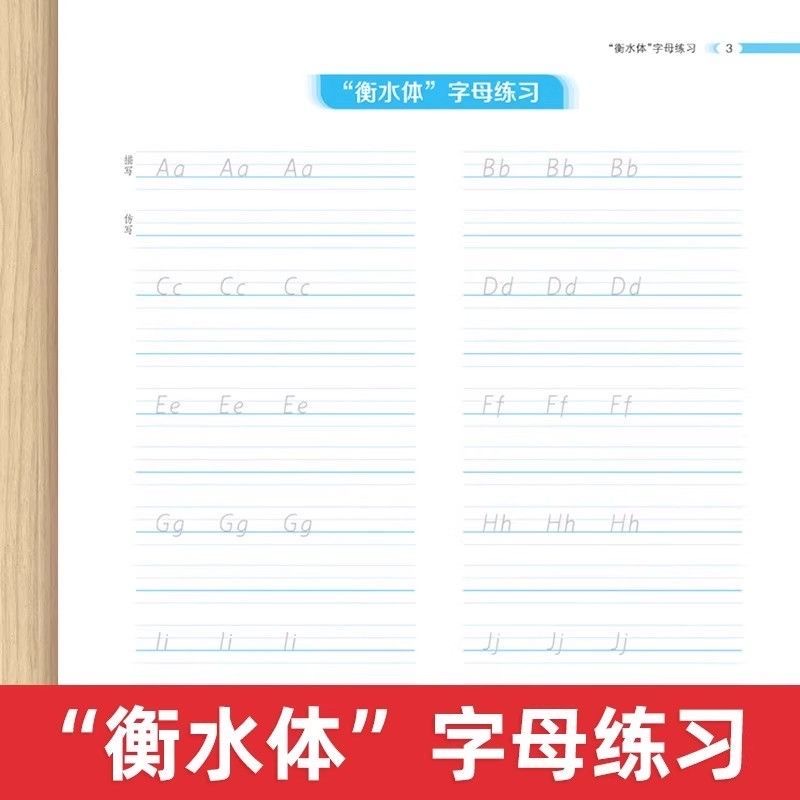 “衡水体”字母练习 3
“衡水体”字母练习
描写 Aa Aa Aa Bb Bb Bb
仿写
Cc Cc Cc Dd Dd Dd
Ee Ee Ee Ff Ff Ff
Gg Gg Gg Hh Hh Hh
Ii Ii Ii Jj Jj Jj
“衡水体”字母练习